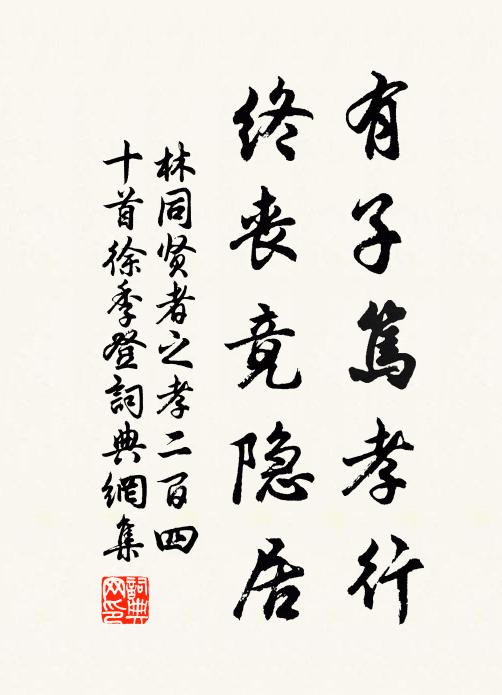 有子笃孝行
终丧竟隐居
林同贤者之孝二百四
十首徐季登詞典網集
詞典
网印